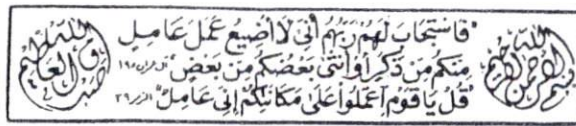 بسم الله الرحمن الرحيم
"فَاسْتَجَابَ لَهُمْ رَبُّهُمْ أَنِّي لَا أُضِيعُ عَمَلَ عَامِلٍ
مِنكُم مِن ذَكَرٍ أَوْ أُنْثَى بَعْضُكُم مِن بَعْضٍ" آل عمران ١٩٥
"قُلْ يَا قَوْمِ اعْمَلُوا عَلَى مَكَانَتِكُمْ إِنِّي عَامِلٌ" الزمر ٣٩
صدق الله العظيم